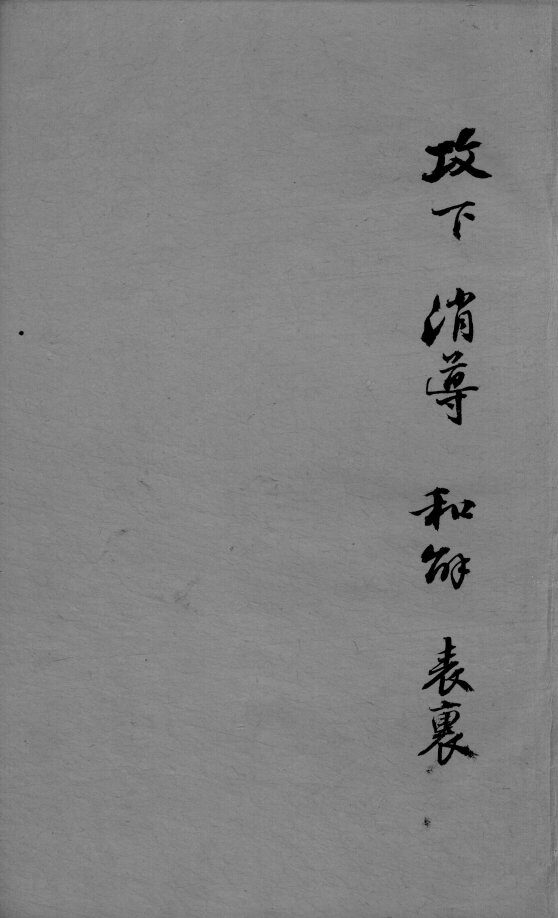 攻下 消導 和解 表裏